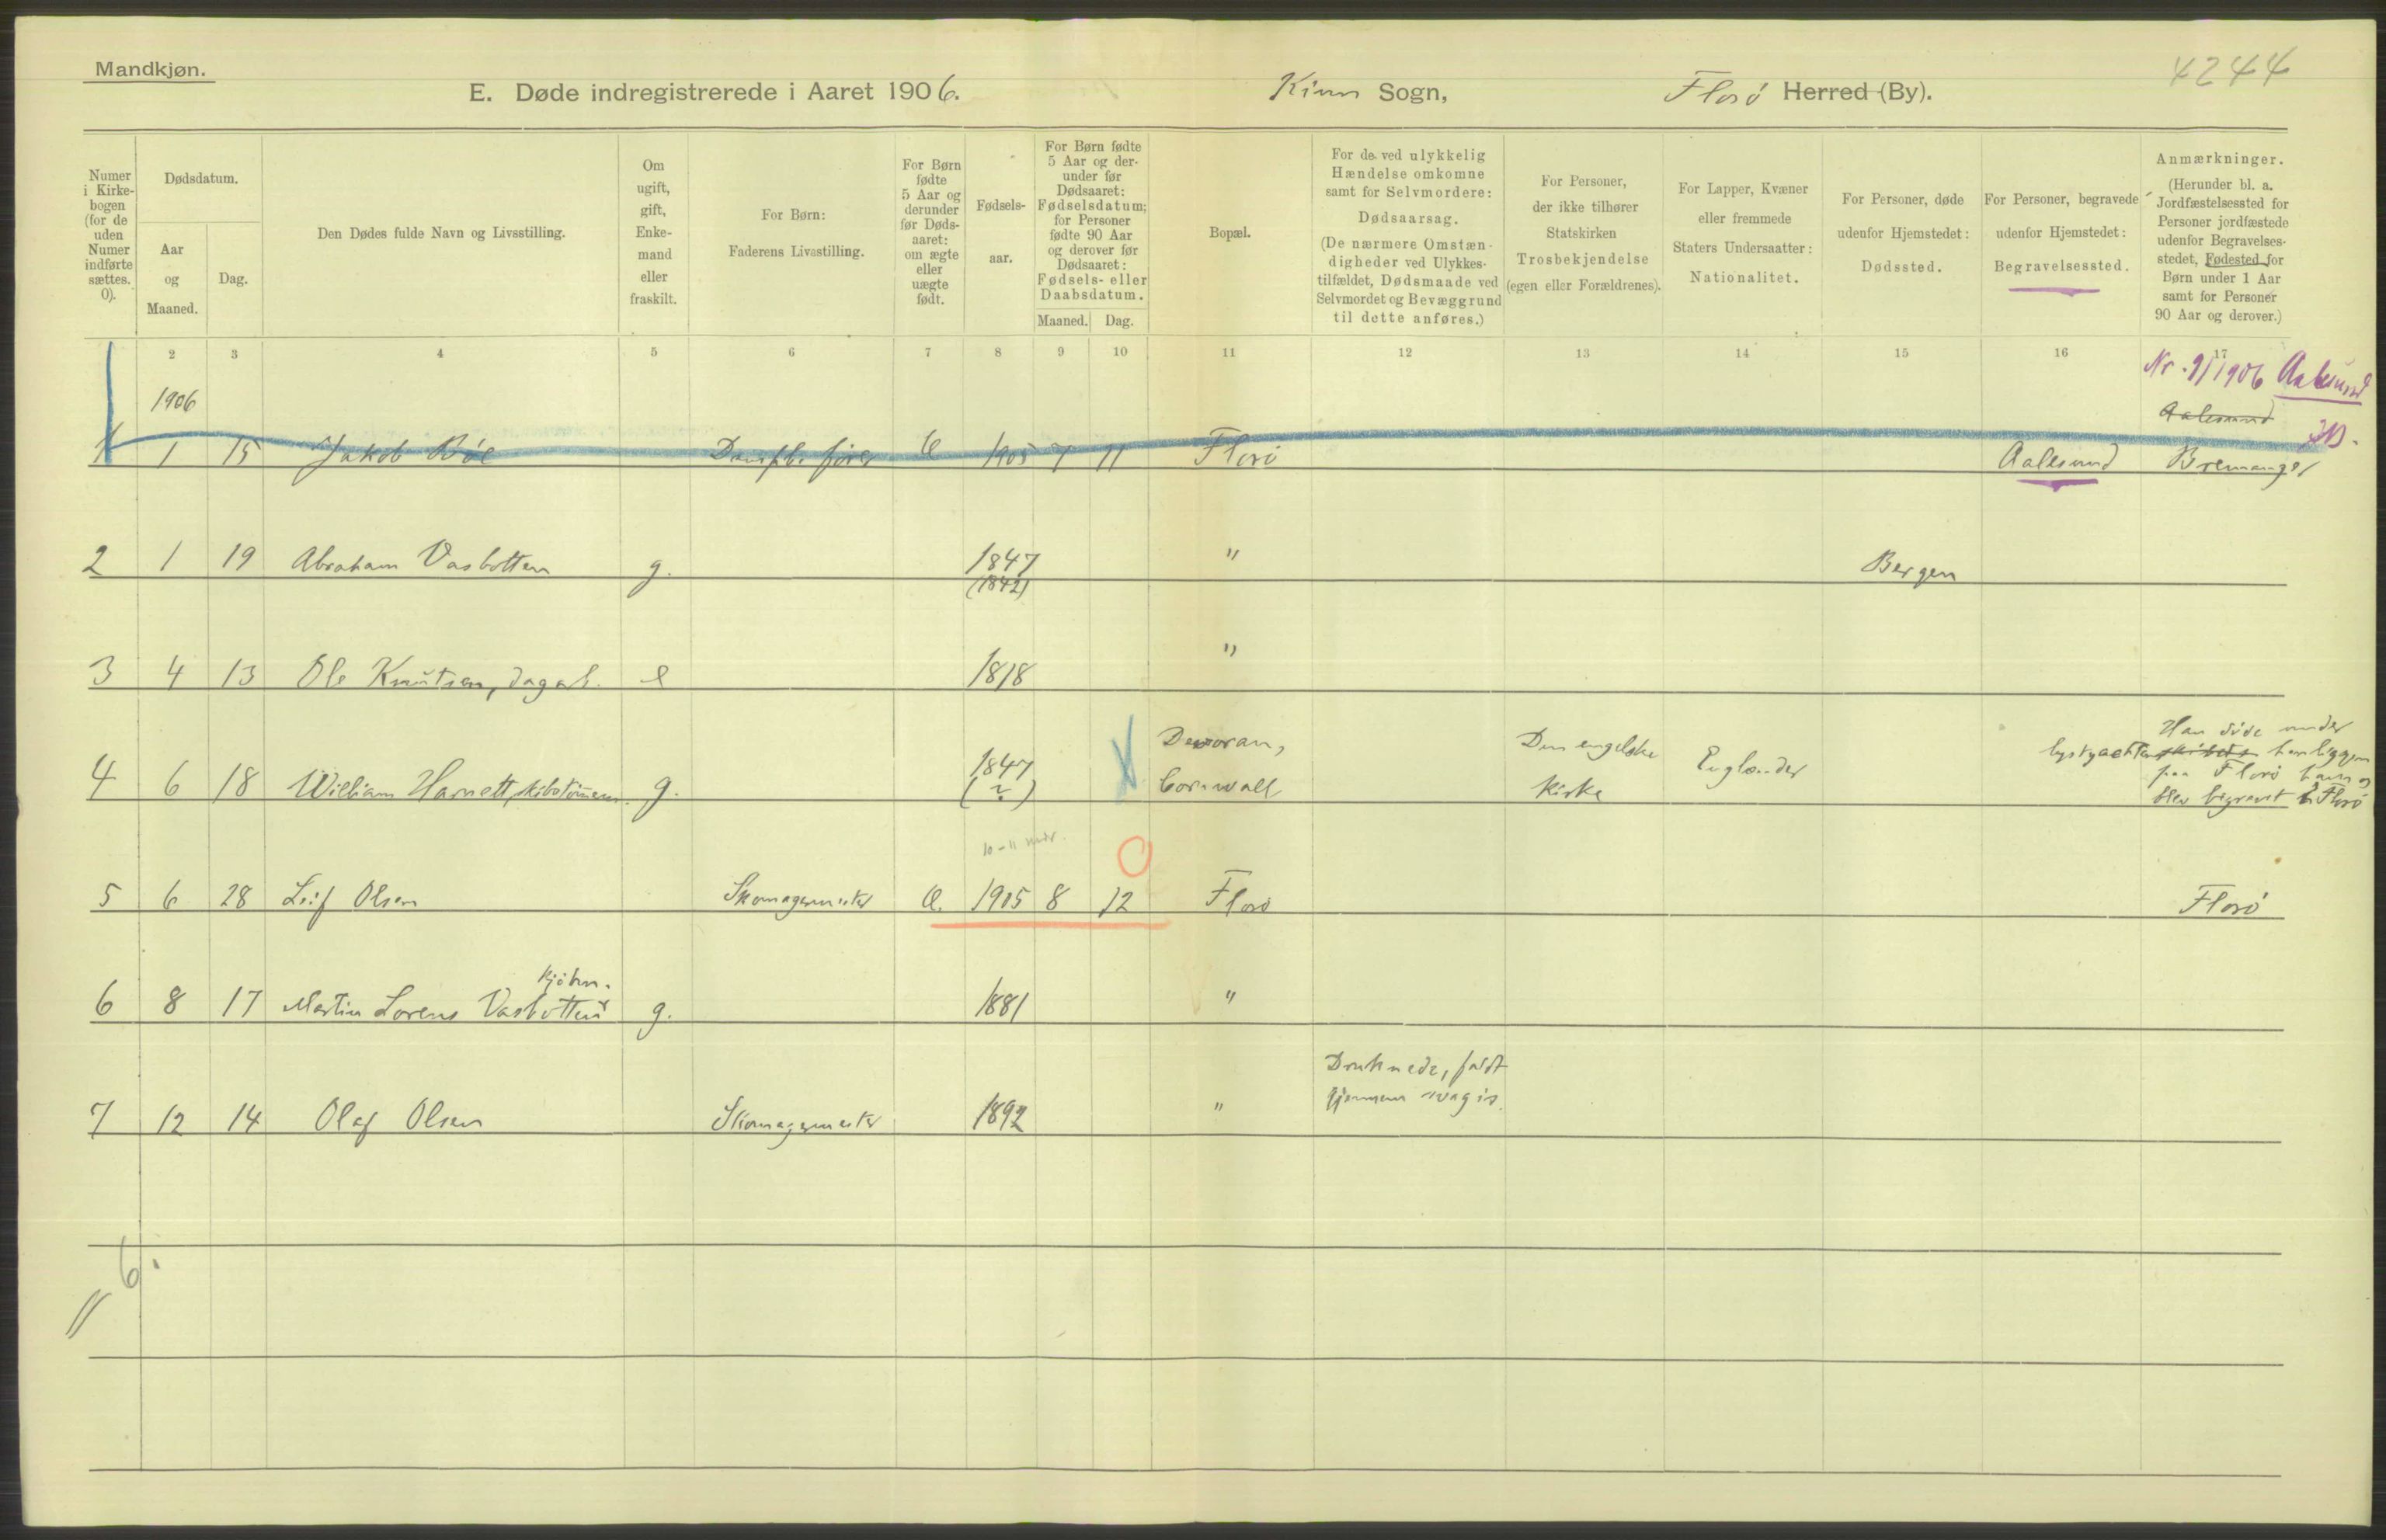 Mandkjøn.
4244
E. Døde indregistrerede i Aaret 1906. Kinn Sogn, Florø Herred (By).
Numer i Kirkebogen (for de uden Numer indførte sættes. 0).
Dødsdatum.
Aar og Maaned.
Dag.
Den Dødes fulde Navn og Livsstilling.
Om ugift, gift, Enkemand eller fraskilt.
For Børn: Faderens Livsstilling.
For Børn fødte 5 Aar og derunder før Dødsaaret: om ægte eller uægte født.
Fødselsaar.
For Børn fødte 5 Aar og derunder før Dødsaaret: Fødselsdatum; for Personer fødte 90 Aar og derover før Dødsaaret: Fødsels- eller Daabsdatum.
Maaned. Dag.
Bopæl.
For de ved ulykkelig Hændelse omkomne samt for Selvmordere: Dødsaarsag. (De nærmere Omstændigheder ved Ulykkestilfældet, Dødsmaade ved Selvmordet og Bevæggrund til dette anføres.)
For Personer, der ikke tilhører Statskirken Trosbekjendelse (egen eller Forældrenes).
For Lapper, Kvæner eller fremmede Staters Undersaatter: Nationalitet.
For Personer, døde udenfor Hjemstedet: Dødssted.
For Personer, begravede udenfor Hjemstedet: Begravelsessted.
Anmærkninger. (Herunder bl. a. Jordfæstelsessted for Personer jordfæstede udenfor Begravelsesstedet, Fødested for Børn under 1 Aar samt for Personer 90 Aar og derover.)
2 3 4 5 6 7 8 9 10 11 12 13 14 15 16 17
Nr. 9/1906 Aalesund
1906
Aalesund
1 1 15 Jakob Bøe Dampsb. fører 1905 7 11 Florø Aalesund Bremanger
2 1 19 Abraham Vasbotten g. 1847 " Bergen
(1842)
3 4 13 Ole Knutsen, dagarb. e 1818 "
4 6 18 William Harnett, skibstømmerm. g. 1847 (?) Devoran, Cornwall Den engelske Kirke Englænder Han døde under lystyachten skibets henliggen paa Florø havn og blev begravet i Florø
10-11 mdr.
5 6 28 Leif Olsen Skomagermester 1905 8 12 Florø Florø
kjøbm.
6 8 17 Martin Lorens Vasbotten g. 1881 "
7 12 14 Olaf Olsen Skomagermester 1892 " Druknede, faldt gjennem svag is.
6.